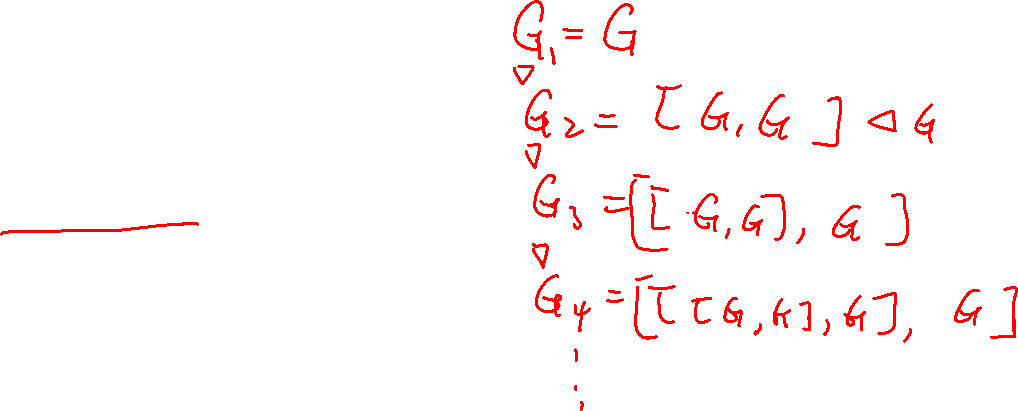 G₁ = G
▽
G₂ = [G, G] ◁ G
▽
G₃ = [[G, G], G]
▽
G₄ = [[[G, G], G], G]
⋮